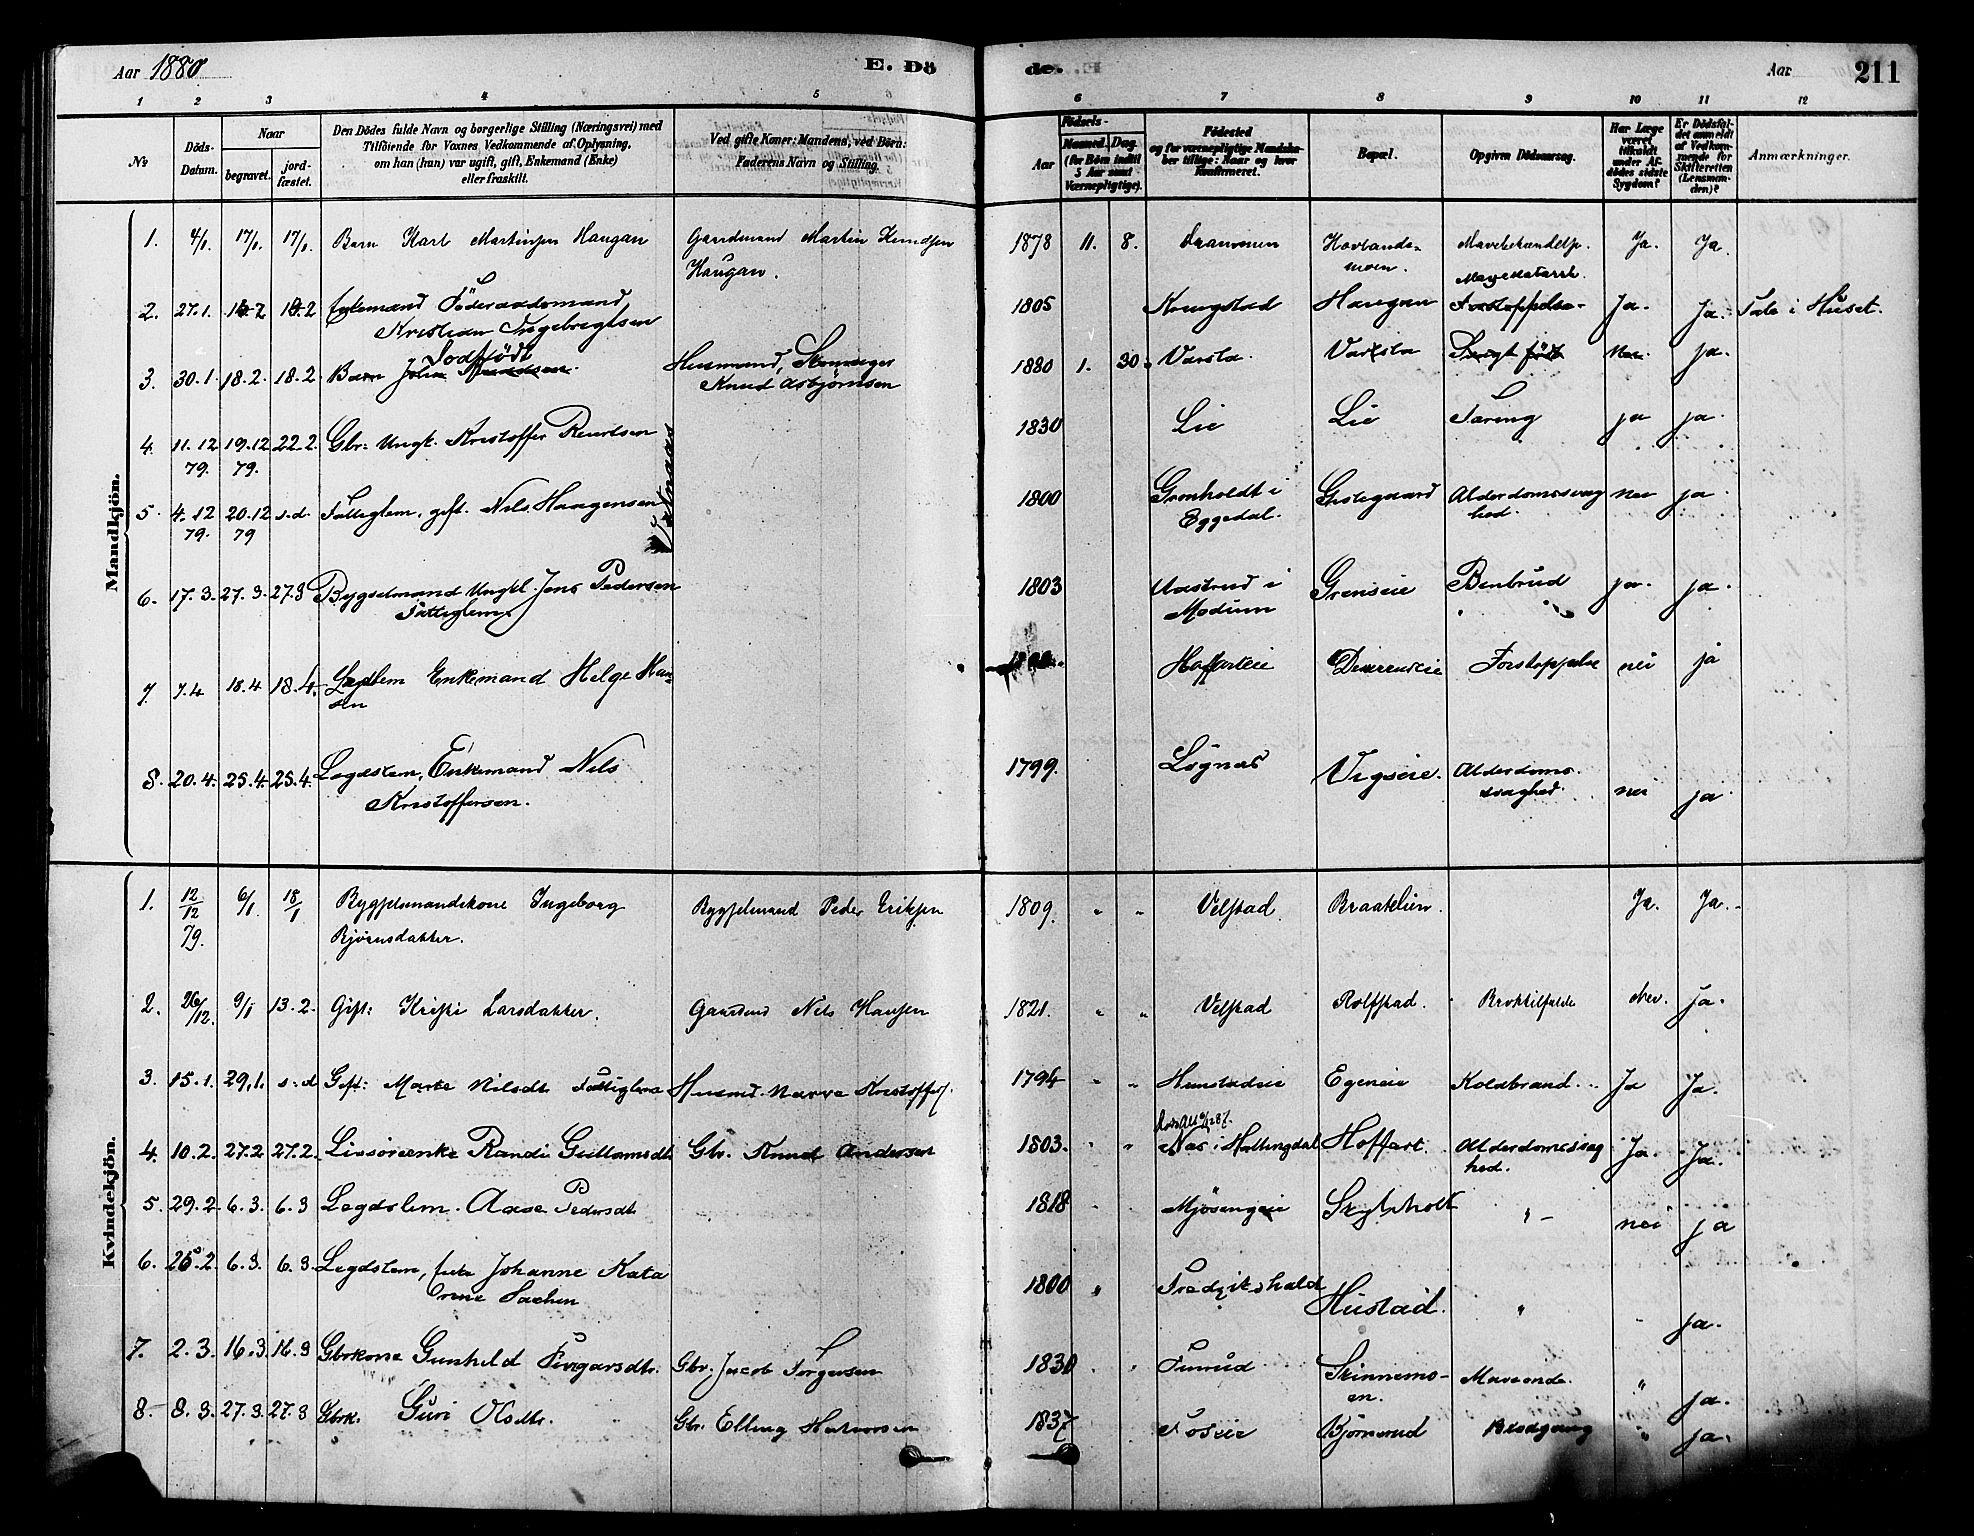 Aar 1880
E. Dö
de.
Aar
211
1 2 3 4 5 6 7 8 9 10 11 12
No
Döds-
Datum.
Naar
begravet.
jord-
fæstet.
Den Dödes fulde Navn og borgerlige Stilling (Næringsvei) med
Tilföiende for Voxnes Vedkommende af Oplysning,
om han (hun) var ugift, gift, Enkemand (Enke)
eller fraskilt.
Ved gifte Koner: Mandens, ved Börn:
Faderens Navn og Stilling.
Födsels-
Aar
Maaned. Dag.
(for Börn indtil
5 Aar samt
Værnepligtige).
Födested
og for værnepligtige Mandska-
ber tillige: Naar og hvor
konfirmeret.
Bopæl.
Opgiven Dödsaarsag.
Har Læge
været
tilkaldt
under Af-
dödes sidste
Sygdom?
Er Dödsfal-
det anmeldt
af Vedkom-
mende for
Skifteretten
(Lensman-
den)?
Anmærkninger.
Mandkjön.
1. 4/1. 17/1. 17/1. Barn Karl Martinsen Haugan Gaardmand Martin Knudsen 1878 11. 8. Hovlands- Ja. Ja.
Haugan. moen.
2. 27.1. Enkemand Föderaadsmand, 1805 Krugstad Haugan Forstoppelse Ja. Ja. Tale i Huset.
Kristian Ingebrigtsen
3. 30.1. 18.2. 18.2 Barn Dodfødt Husmand, 1880 1. 30. Varsta. Varsta født Nei ja.
Knud Asbjørnsen
4. 11.12 19.12 22.2. Gbr. Ungk. Kristoffer 1830 Lie Lie Tæring ja ja.
79. 79.
5. 4.12 20.12 s.d. Fattiglem, gift. Nils Haagensen 1800 Grønholdt i Alderdomssvag nei ja.
79. 79 Eggedal. hed.
6. 17.3. 27.3. 27.3 Bygselmand Ungkl. Jens Pedersen 1803 i Grenseie Benbrud ja. ja.
Fattiglem. Modum
7. 7.4 18.4 18.4. Enkemand Helge Han- Hoffarteie Forstoppelse nei ja
sen
8. 20.4. 25.4. 25.4. Legdslem, Enkemand Nils 1799. Lögnas Vigseie. Alderdoms-
Kristoffersen. svaghed. nei ja.
Kvindekjön.
1. 12/12 6/1. 18/1 Bygselmandskone Ingeborg Bygselmand Peder Eriksen 1809. " " Velstad. Braatelien. Ja. Ja.
79. Bjørnsdatter.
2. 26/12. 9/1 13.2. Gift: Kristi Larsdatter. Gaardmd Nils Hansen 1821. " " Velstad Rolfstad. Broktilfælde Nei. Ja.
3. 15.1. 29.1. s.d Gift: Marte Nilsdt. Fattiglem Husmd. Narve Kristoffers. 1794 " " Hunstadeie Egneeie Koldbrand Ja Ja.
4. 10.2. 27.2 27.2. Randi Guttormsdt. Gbr. Knud Andersen 1803. " " Nes i Hallingdal Hoffart. Alderdomssvag Ja Ja.
hed.
5. 29.2. 6.3. 6.3 Legdslem. Aase Pedersdt. 1818 Mjøsengeie " nei ja
6. 6.3. 6.3. Legdslem, Johanne Kata 1800 " Fredrikshald Hustad. " ja.
rine
7. 2.3. 16.3 16.3 Gbrkone Gunhild Gbr. Jacob Torgersen 1830 Tunrud Skinnemo- "
en. ja.
8. 8.3. 27.3. 27.3 Gbrk. Guri Olsdtr. Gbr. Elling Halvorsen 1837 Foseie Bjørnerud Blodgang " ja.